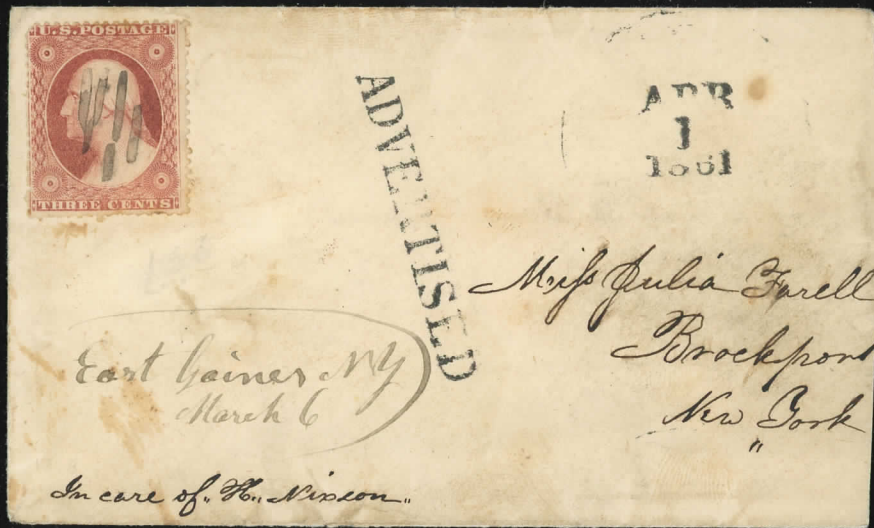 U.S. POSTAGE
THREE CENTS
ADVERTISED
APR
1
1861
Miss Julia Farell
Brockport
New York
East Gaines NY
March 6
In care of H. Nixon